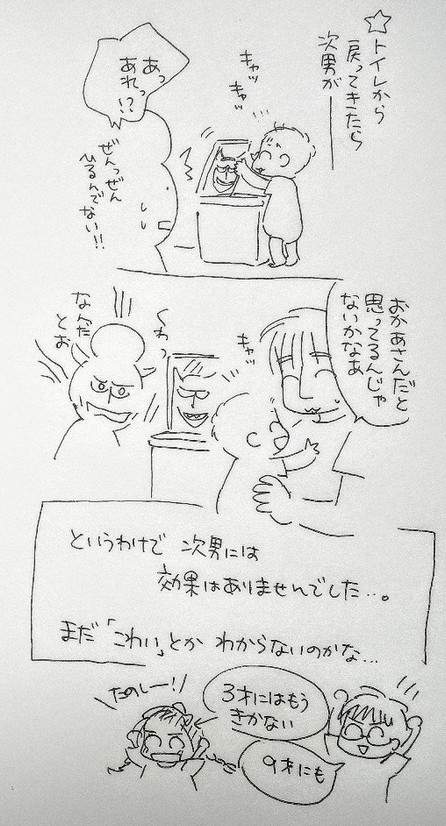 ☆トイレから
戻ってきたら
次男が――
キャッ
キャッ
あっ
あれっ!?
ぜんっぜん
ひるんでない!!
おかあさんだと
思ってるんじゃ
ないかなあ
キャッ
くわっ
なんだ
とお
というわけで 次男には
効果はありませんでした…。
まだ「こわい」とか わからないのかな…
たのしー!!
3才にはもう
きかない
9才にも